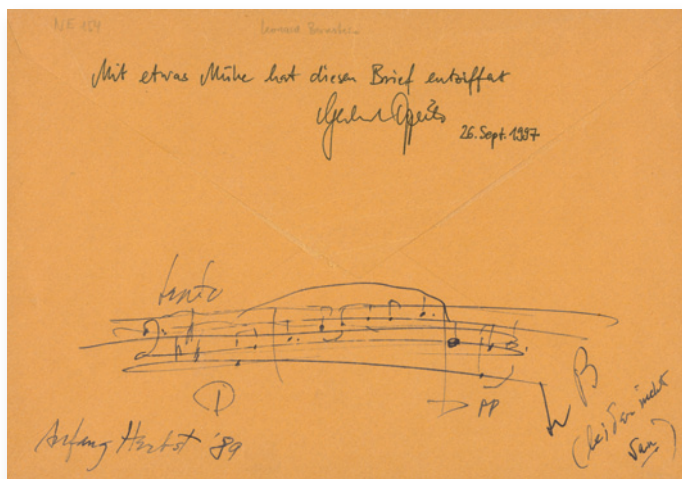 NE 154
Leonard Bernstein
Mit etwas Mühe hat diesen Brief entziffert
26. Sept. 1997
lento
pp
Anfang Herbst '89
L B
(leider nicht
van)